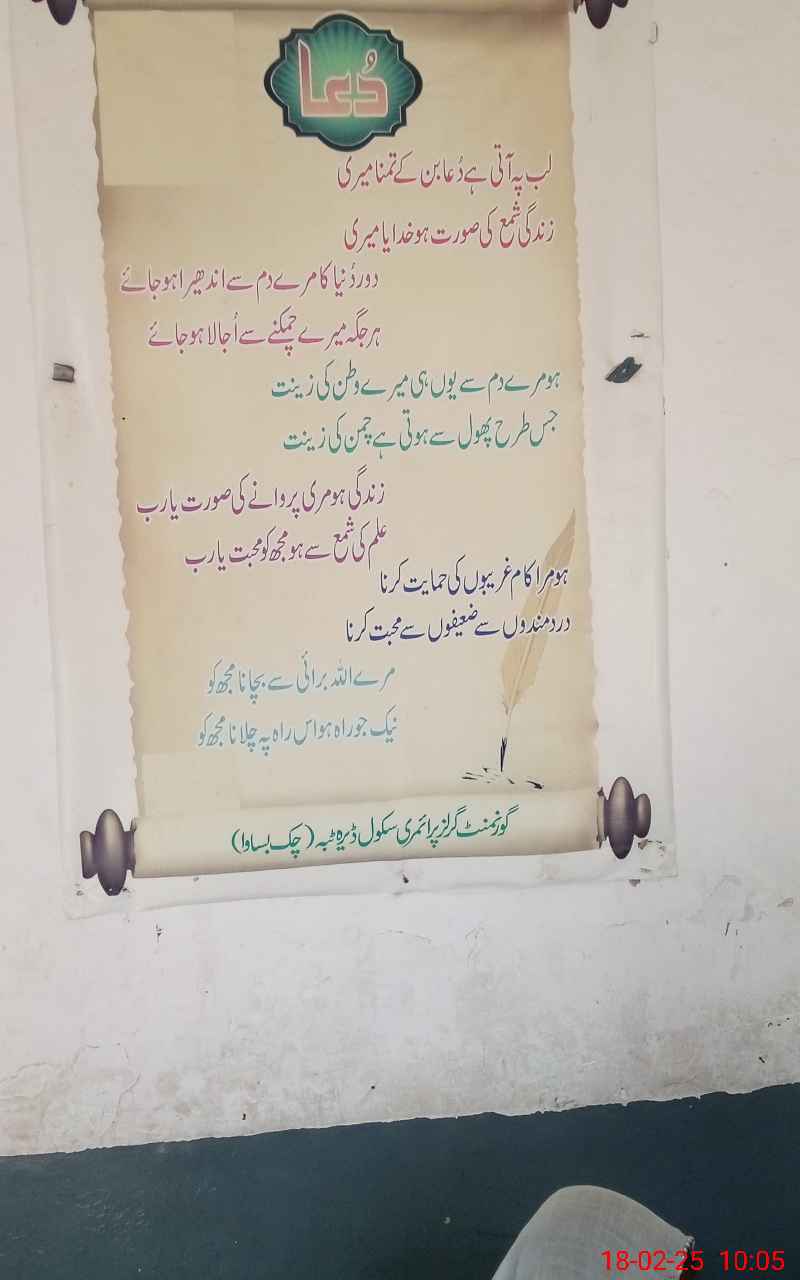 دُعا
لب پہ آتی ہے دُعا بن کے تمنا میری
زندگی شمع کی صورت ہو خدایا میری
دور دُنیا کا مرے دم سے اندھیرا ہو جائے
ہر جگہ میرے چمکنے سے اُجالا ہو جائے
ہو مرے دم سے یوں ہی میرے وطن کی زینت
جس طرح پھول سے ہوتی ہے چمن کی زینت
زندگی ہو مری پروانے کی صورت یارب
علم کی شمع سے ہو مجھ کو محبت یارب
ہو مرا کام غریبوں کی حمایت کرنا
دردمندوں سے ضعیفوں سے محبت کرنا
مرے اللہ برائی سے بچانا مجھ کو
نیک جو راہ ہو اس راہ پہ چلانا مجھ کو
گورنمنٹ گرلز پرائمری سکول ڈیرہ ٹبہ (چک بساوا)
18-02-25 10:05